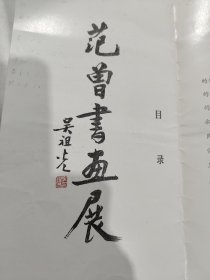 范曾書畫展
吴祖光
目录